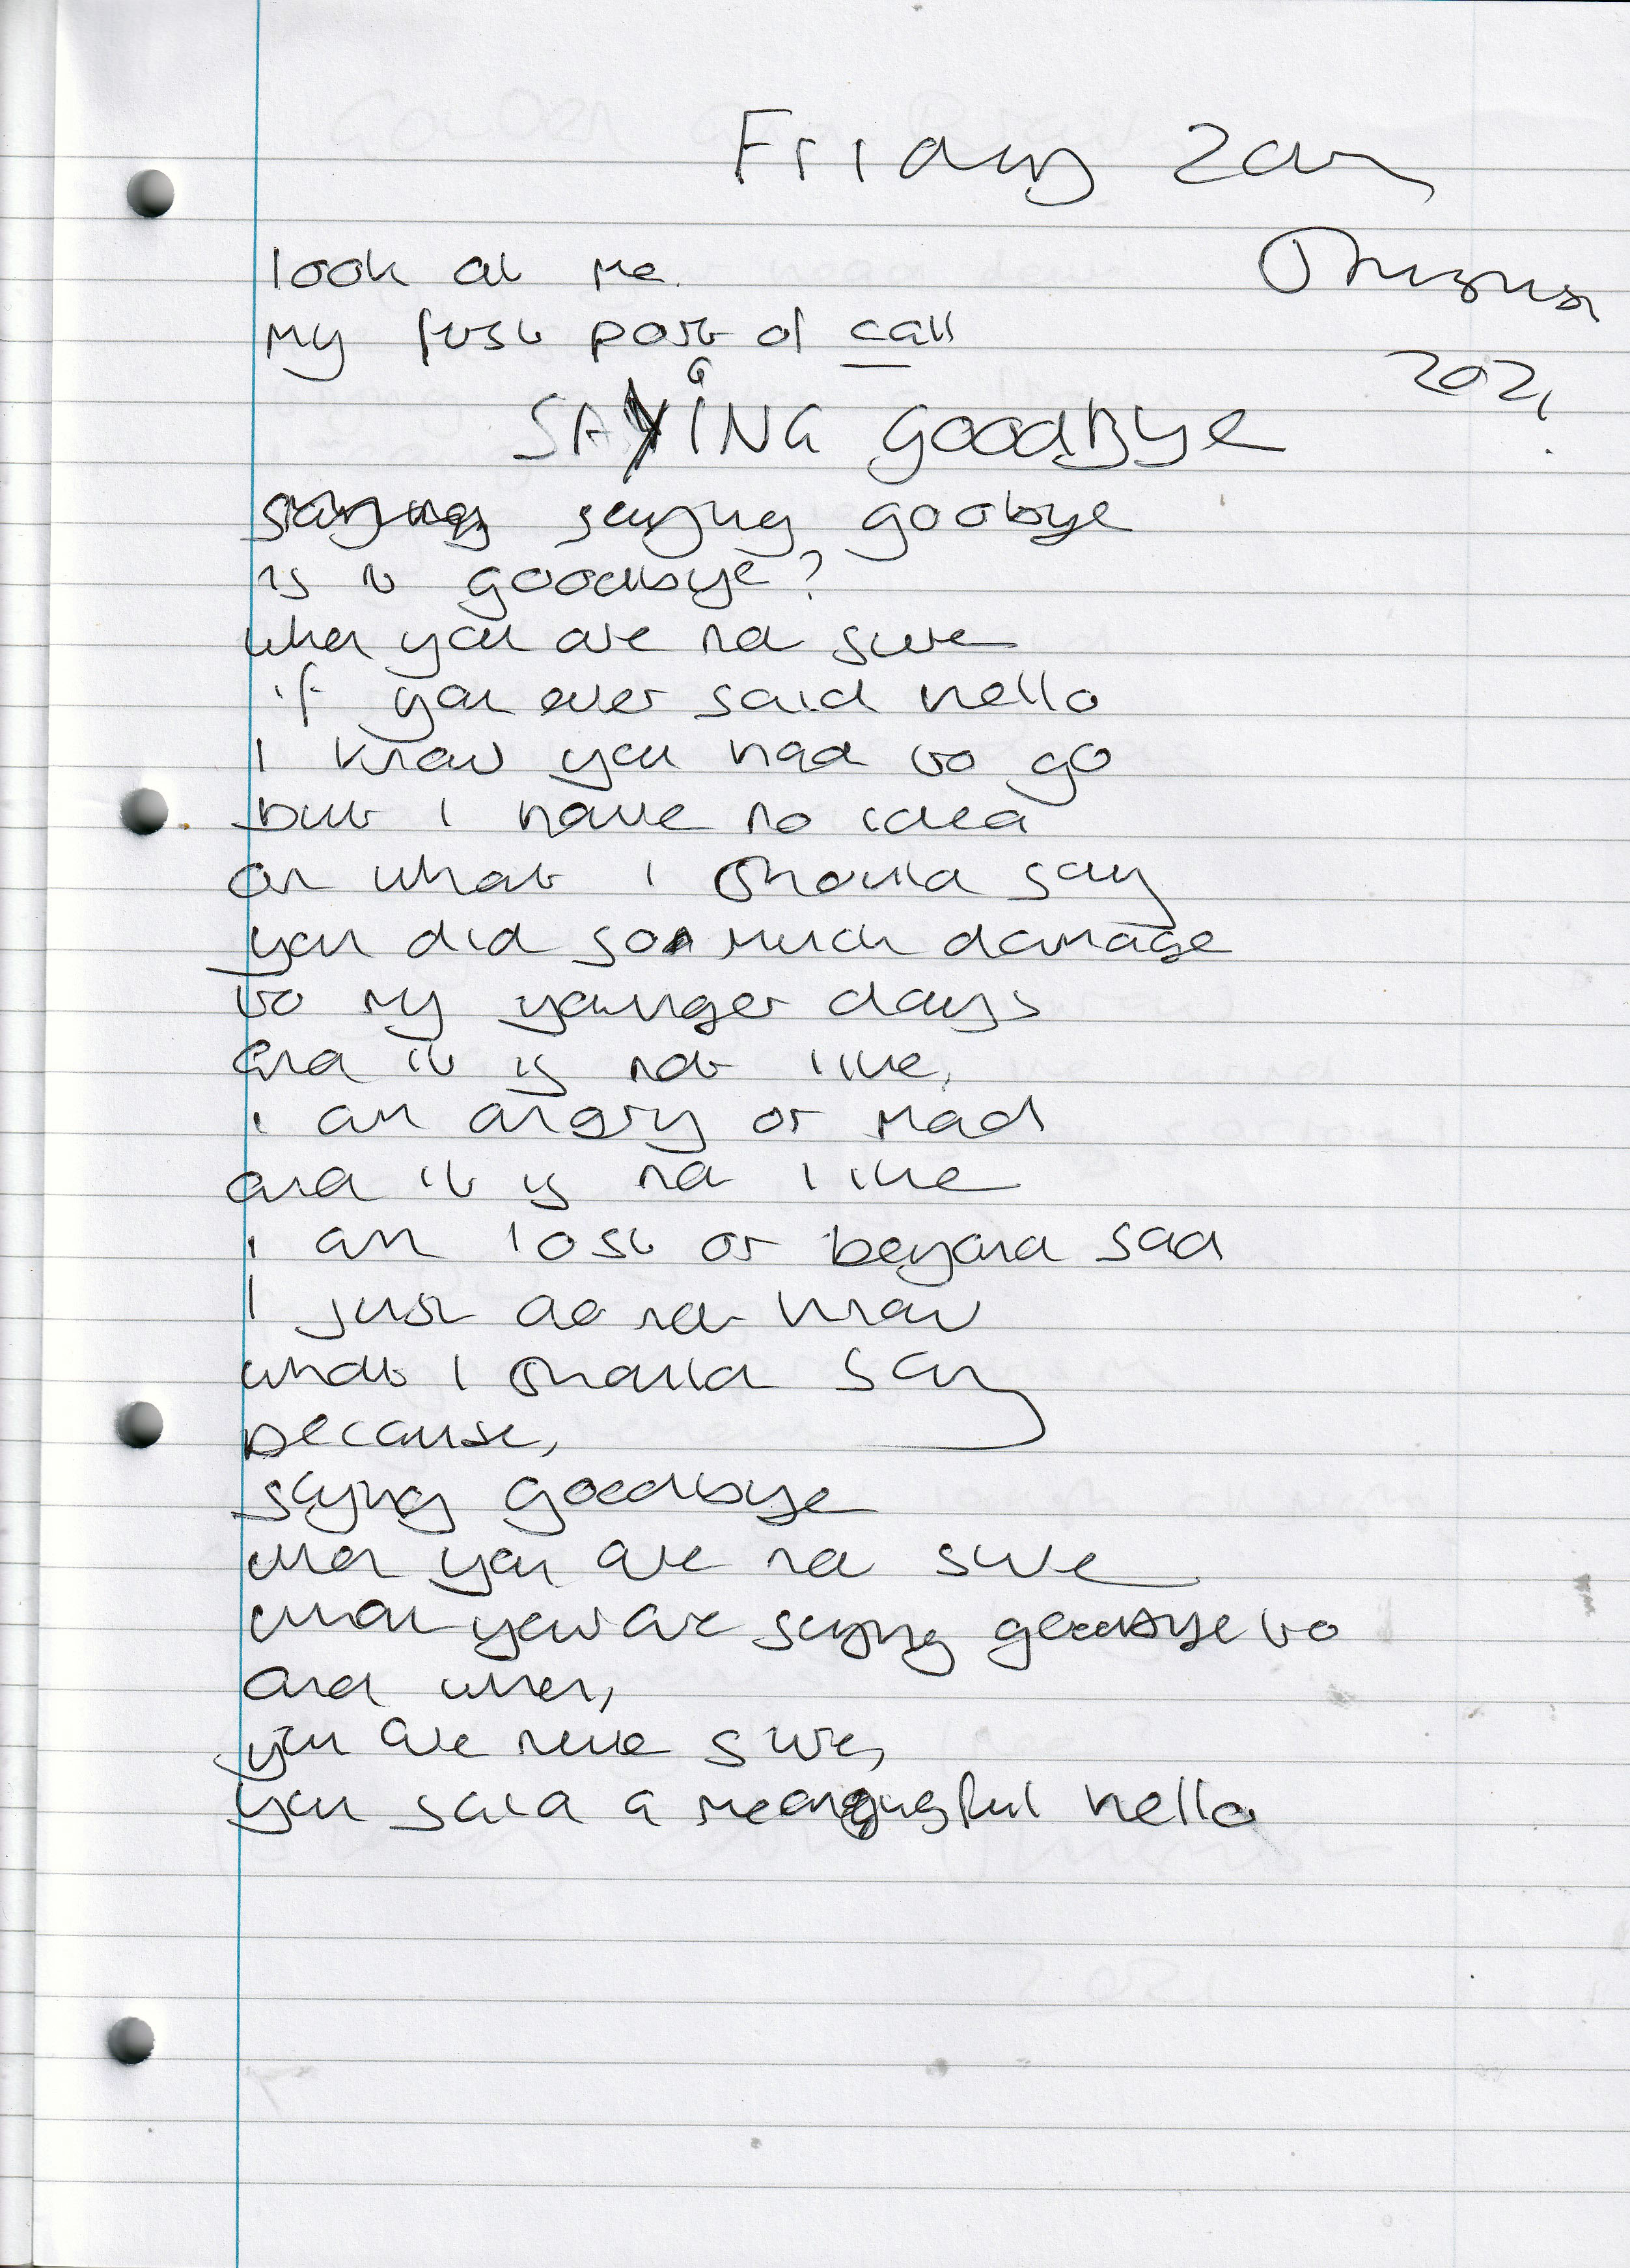 Friday 2
look at me.
My first port of call
2021
SAYING goodBye
saying saying goobye
is it goodbye?
when you are not sure
if you ever said hello
I know you had to go
but i have no idea
on what i should say
you did so much damage
to my younger days
and it is not like,
i am angry or mad
and it is not like
i am lost or beyond sad
I just do not know
what I should say
because,
saying goodbye
when you are not sure
what you are saying goodbye to
and when,
you are sure,
you said a meaningful hello